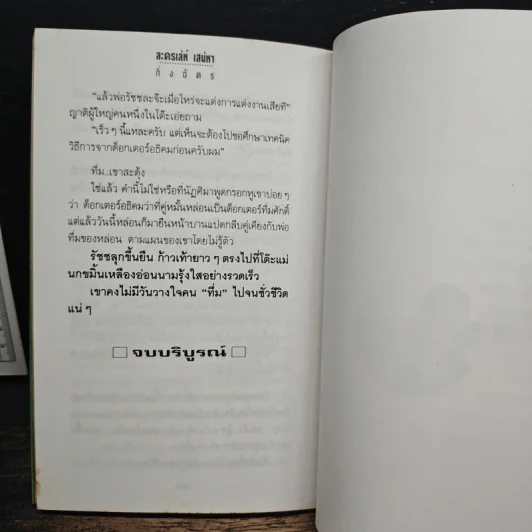 ละครเล่ห์ เสน่หา
กิ่งฉัตร
"แล้วพ่อรัชชละจ๊ะเมื่อไหร่จะแต่งการแต่งงานเสียที"
ญาติผู้ใหญ่คนหนึ่งในโต๊ะเอ่ยถาม
"เร็วๆ นี้แหละครับ แต่เห็นจะต้องไปขอศึกษาเทคนิค
วิธีการจากด็อกเตอร์อธิคมก่อนครับผม"
ทึ่ม..เขาสะดุ้ง
ใช่แล้ว คำนี้ไม่ใช่หรือที่นัฏศิมาพูดกรอกหูเขาบ่อยๆ
ว่า ด็อกเตอร์อธิคมว่าที่คู่หมั้นหล่อนเป็นด็อกเตอร์ทึ่มศักดิ์
แต่แล้ววันนี้หล่อนก็มายืนหน้าบานแปดกลีบคู่เคียงกับพ่อ
ทึ่มของหล่อน ตามแผนของเขาโดยไม่รู้ตัว
รัชชลุกขึ้นยืน ก้าวเท้ายาวๆ ตรงไปที่โต๊ะแม่
นกขมิ้นเหลืองอ่อนนามรุ้งใสอย่างรวดเร็ว
เขาคงไม่มีวันวางใจคน "ทึ่ม" ไปจนชั่วชีวิต
แน่ๆ
จบบริบูรณ์